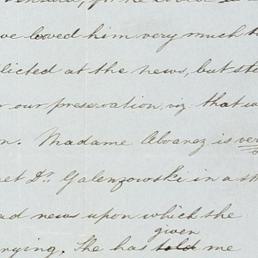 ve loved him very much t
licted at the news, but st
r our preservation, viz that w
n. Madame Alvarez is ver
et Dr. Galenzowski in a st
ad news upon which the
rying. She has told given me